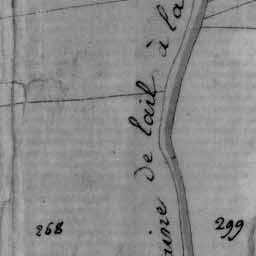 de l'ail à la
268
299